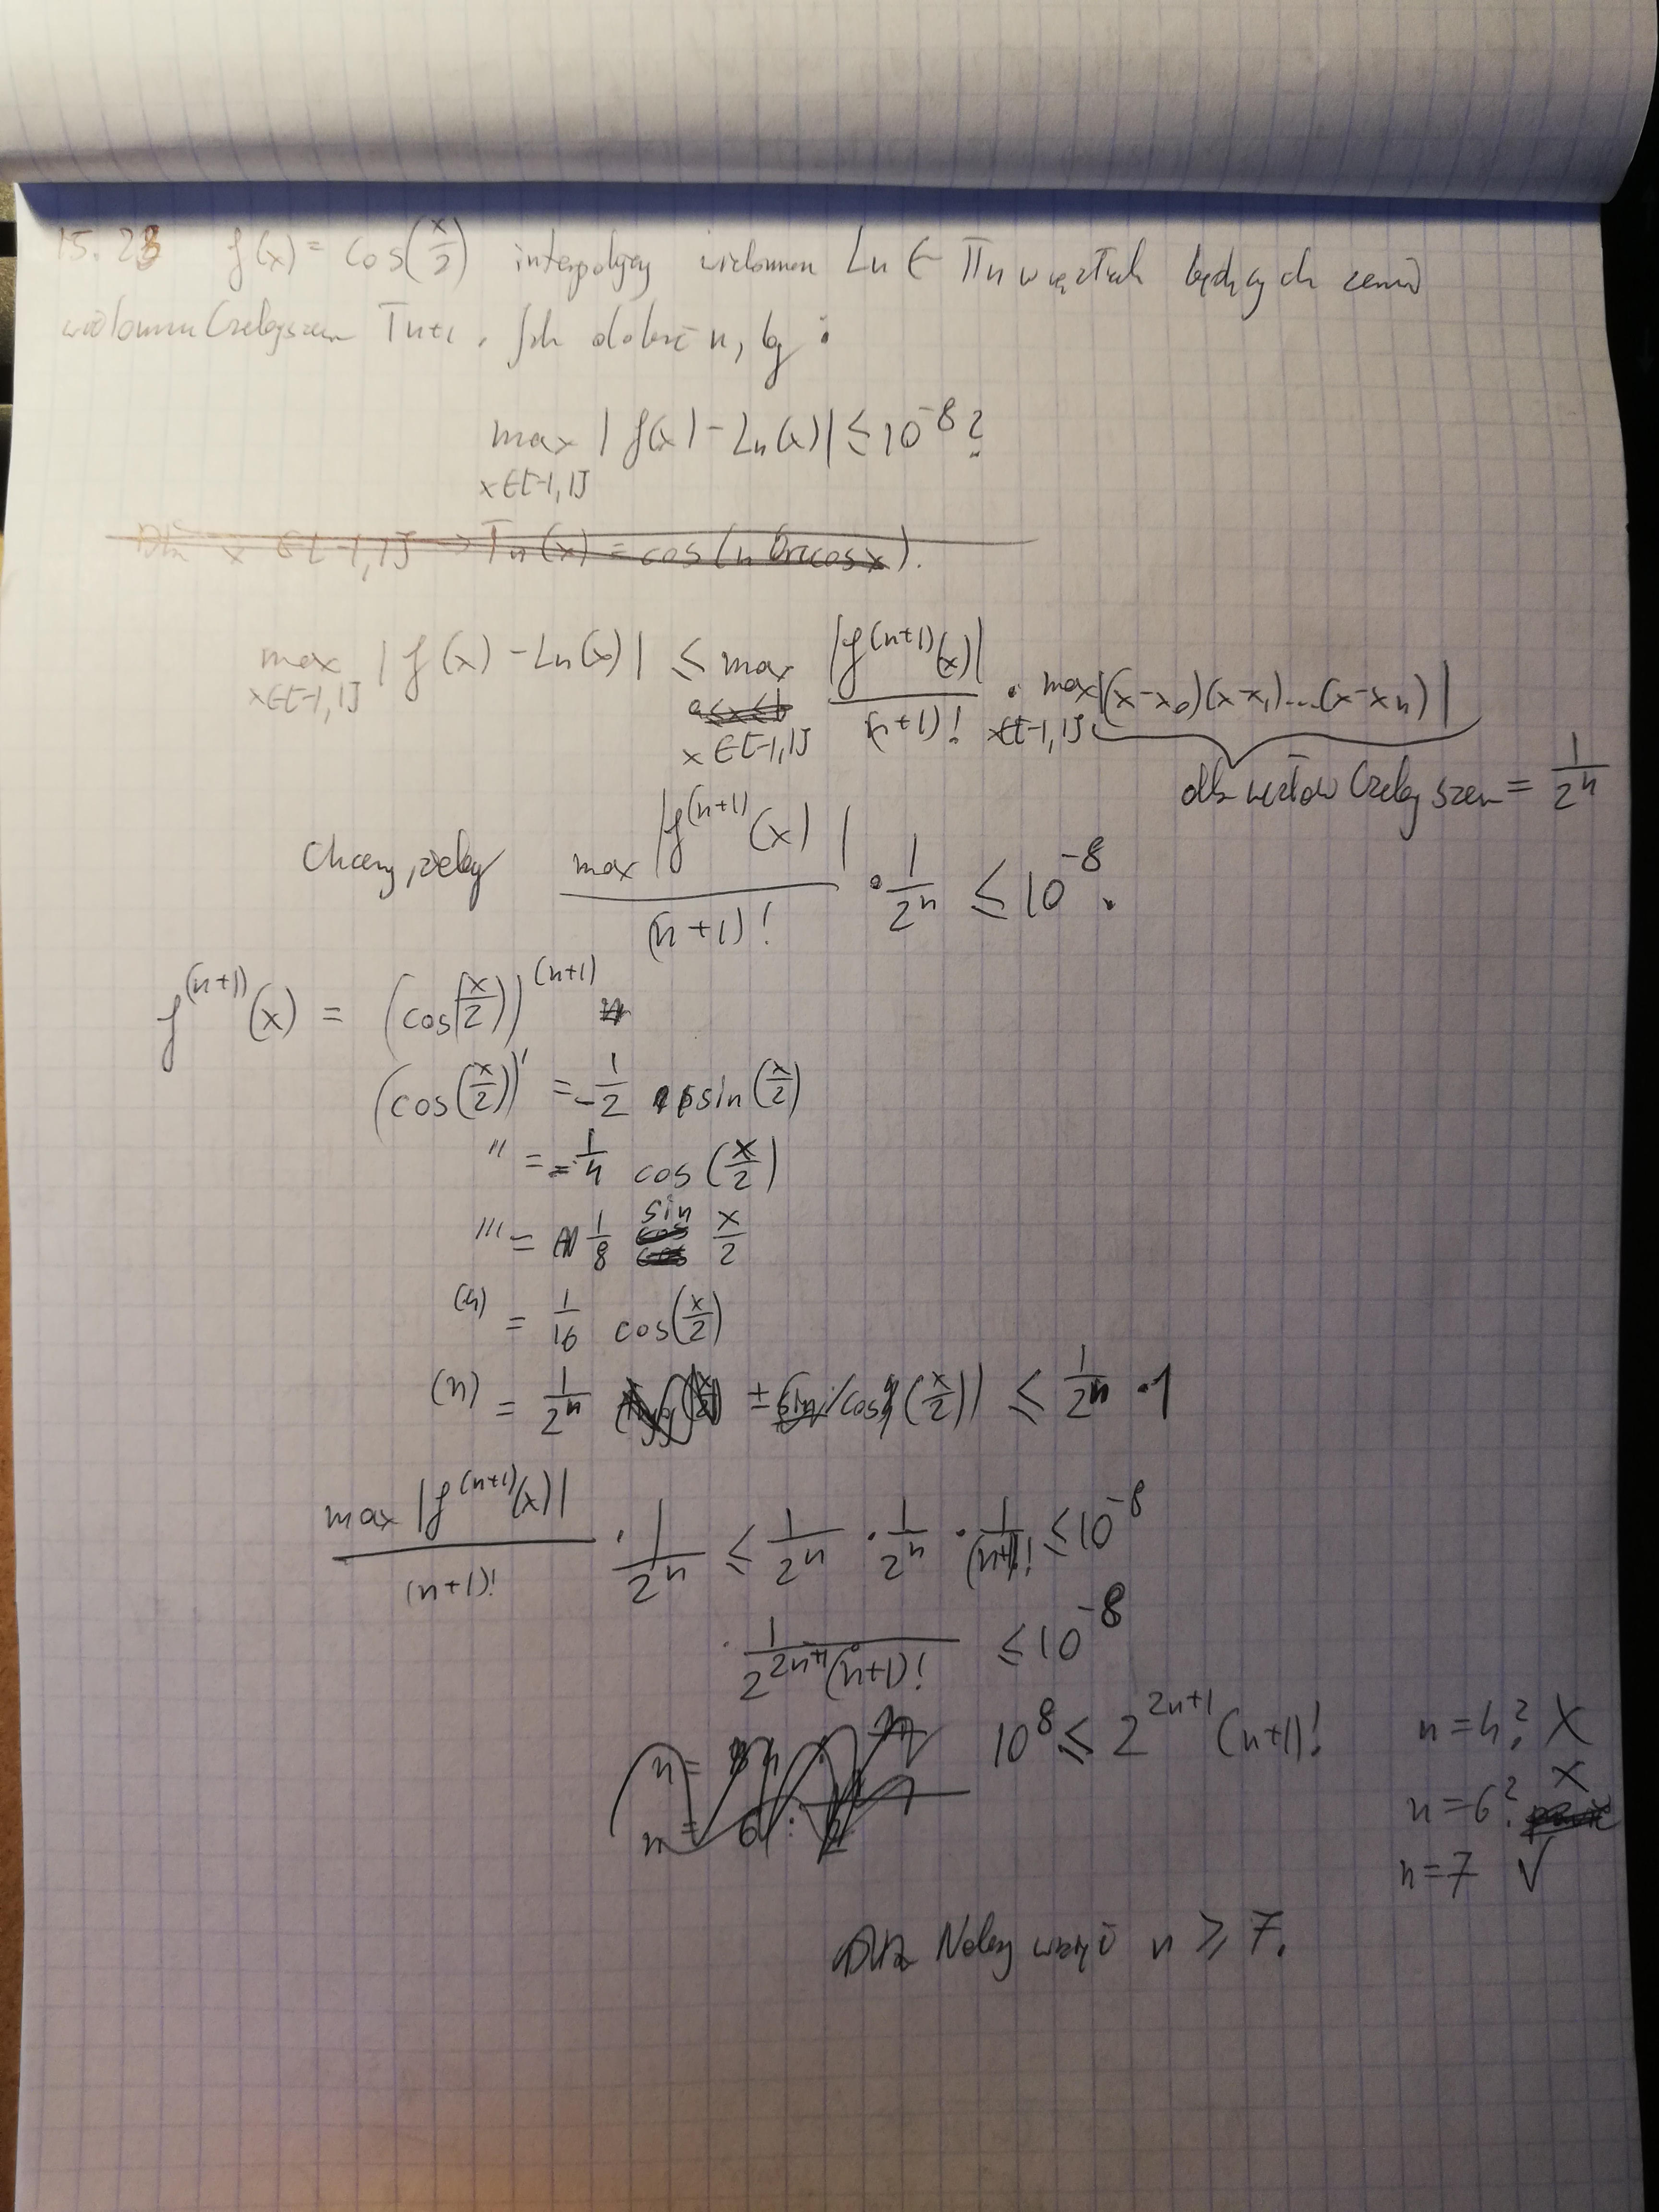 15.23 f(x) = cos(x/2) interpolujemy wielomianem Ln ∈ Πn w węzłach będących zerami
wielomianu Czebyszewa Tn+1. Jak dobrać n, by:
max |f(x) - Ln(x)| ≤ 10^-8?
x∈[-1,1]
x ∈ [-1,1] → Tn(x) = cos(n arccos x).
max |f(x) - Ln(x)| ≤ max |f^(n+1)(x)| / (n+1)! · max |(x-x0)(x-x1)...(x-xn)|
x∈[-1,1] a≤x≤b x∈[-1,1] x∈[-1,1]
dla węzłów Czebyszewa = 1/2^n
Chcemy, żeby max |f^(n+1)(x)| / (n+1)! · 1/2^n ≤ 10^-8.
f^(n+1)(x) = (cos(x/2))^(n+1)
(cos(x/2))' = -1/2 sin(x/2)
'' = -1/4 cos(x/2)
''' = 1/8 sin x/2
(4) = 1/16 cos(x/2)
(n) = 1/2^n ± (sin/cos)(x/2) ≤ 1/2^n · 1
max |f^(n+1)(x)| / (n+1)! · 1/2^n ≤ 1/2^n · 1/2^n · 1/(n+1)! ≤ 10^-8
1 / 2^(2n+1) (n+1)! ≤ 10^-8
10^8 ≤ 2^(2n+1) (n+1)! n=4? X
n=6? X
n=7 √
Należy wziąć n ≥ 7.